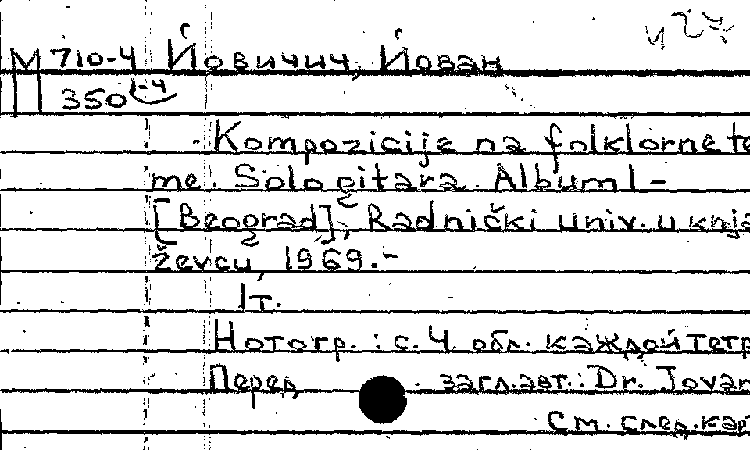 М 710-4 Йовичич, Йован
350 1-4
Kompozicije na folklorne te
me. Solo gitara. Album 1 –
[Beograd], Radnički univ. u knja
ževcu, 1969.–
1 т.
Нотогр.: с. 4 обл. каждой тетр
Перед загл. авт.: Dr. Jovan
См. след. кар